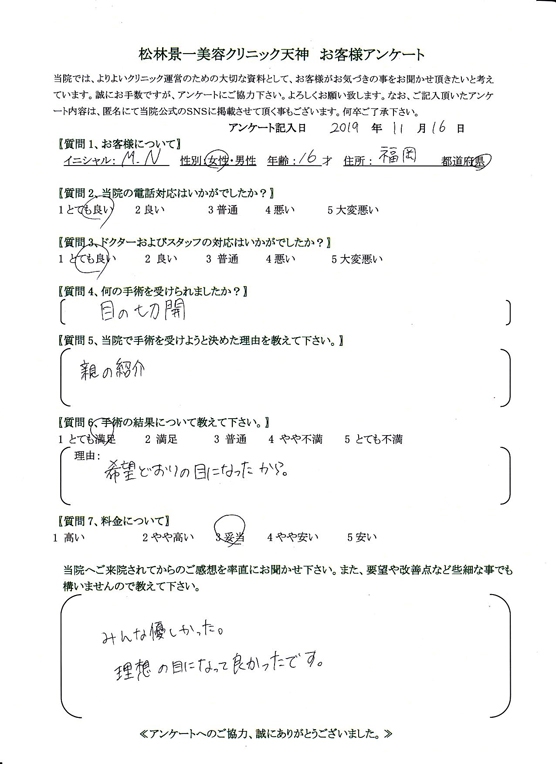 松林景一美容クリニック天神　お客様アンケート
当院では、よりよいクリニック運営のための大切な資料として、お客様がお気づきの事をお聞かせ頂きたいと考え
ています。誠にお手数ですが、アンケートにご協力下さい。よろしくお願い致します。なお、ご記入頂いたアンケ
ート内容は、匿名にて当院公式のSNSに掲載させて頂く事もございます。何卒ご了承下さい。
アンケート記入日　2019　年　11　月　16　日
〖質問1、お客様について〗
イニシャル：M.N　性別：女性・男性　年齢：16才　住所：福岡　都道府県
〖質問2、当院の電話対応はいかがでしたか？〗
1 とても良い　2 良い　3 普通　4 悪い　5 大変悪い
〖質問3、ドクターおよびスタッフの対応はいかがでしたか？〗
1 とても良い　2 良い　3 普通　4 悪い　5 大変悪い
〖質問4、何の手術を受けられましたか？〗
目の切開
〖質問5、当院で手術を受けようと決めた理由を教えて下さい。〗
親の紹介
〖質問6、手術の結果について教えて下さい。〗
1 とても満足　2 満足　3 普通　4 やや不満　5 とても不満
理由：
希望どおりの目になったから。
〖質問7、料金について〗
1 高い　2 やや高い　3 妥当　4 やや安い　5 安い
当院へご来院されてからのご感想を率直にお聞かせ下さい。また、要望や改善点など些細な事でも
構いませんので教えて下さい。
みんな優しかった。
理想の目になって良かったです。
≪アンケートへのご協力、誠にありがとうございました。≫